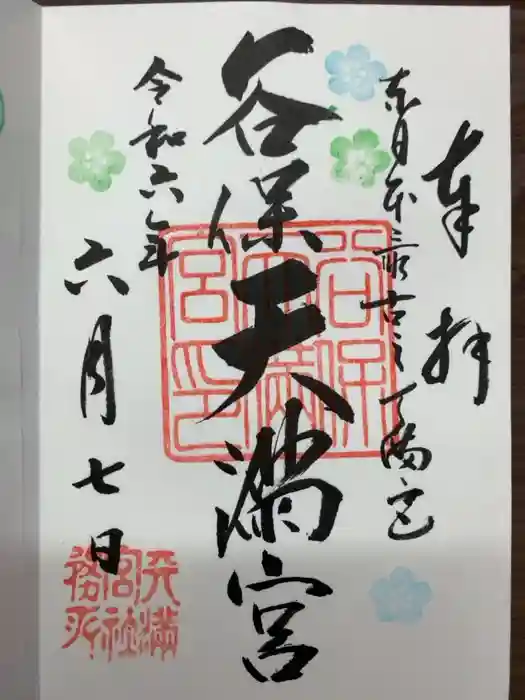 奉拝
東日本最古之天満宮
谷保天満宮
令和六年
六月七日
谷保
天満
宮印
天満
宮社
務所